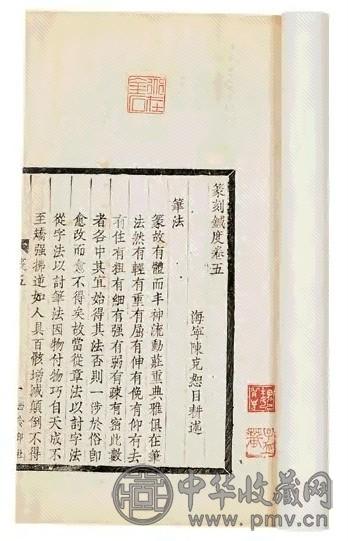 篆刻鍼度卷五
海寧陳克恕目耕述
筆法
篆故有體而丰神流動莊重典雅俱在筆
法然有輕有重有屈有伸有俛有仰有去
有住有粗有細有強有弱有疎有密此數
者各中其宜始得其法否則一涉於俗即
愈改而愈不得矣故當從章法以討字法
從字法以討筆法因物付物巧自天成不
至矯強拂逆如人具百骸增減顛倒不得
中华收藏网
www.pmv.cn